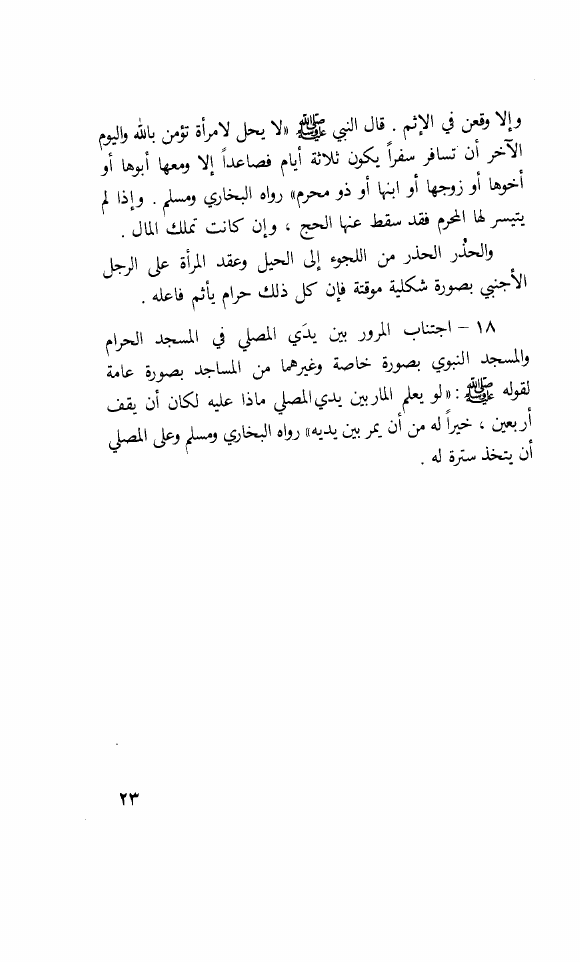 وإلا وقعن في الإثم . قال النبي ﷺ «لا يحل لامرأة تؤمن بالله واليوم
الآخر أن تسافر سفراً يكون ثلاثة أيام فصاعداً إلا ومعها أبوها أو
أخوها أو زوجها أو ابنها أو ذو محرم» رواه البخاري ومسلم . وإذا لم
يتيسر لها المحرم فقد سقط عنها الحج ، وإن كانت تملك المال .
والحذْر الحذر من اللجوء إلى الحيل وعقد المرأة على الرجل
الأجنبي بصورة شكلية موقتة فإن كل ذلك حرام يأثم فاعله .
١٨ – اجتناب المرور بين يدَي المصلي في المسجد الحرام
والمسجد النبوي بصورة خاصة وغيرهما من المساجد بصورة عامة
لقوله ﷺ : «لو يعلم المار بين يدي المصلي ماذا عليه لكان أن يقف
أربعين ، خيراً له من أن يمر بين يديه» رواه البخاري ومسلم وعلى المصلي
أن يتخذ سترة له .
٢٣